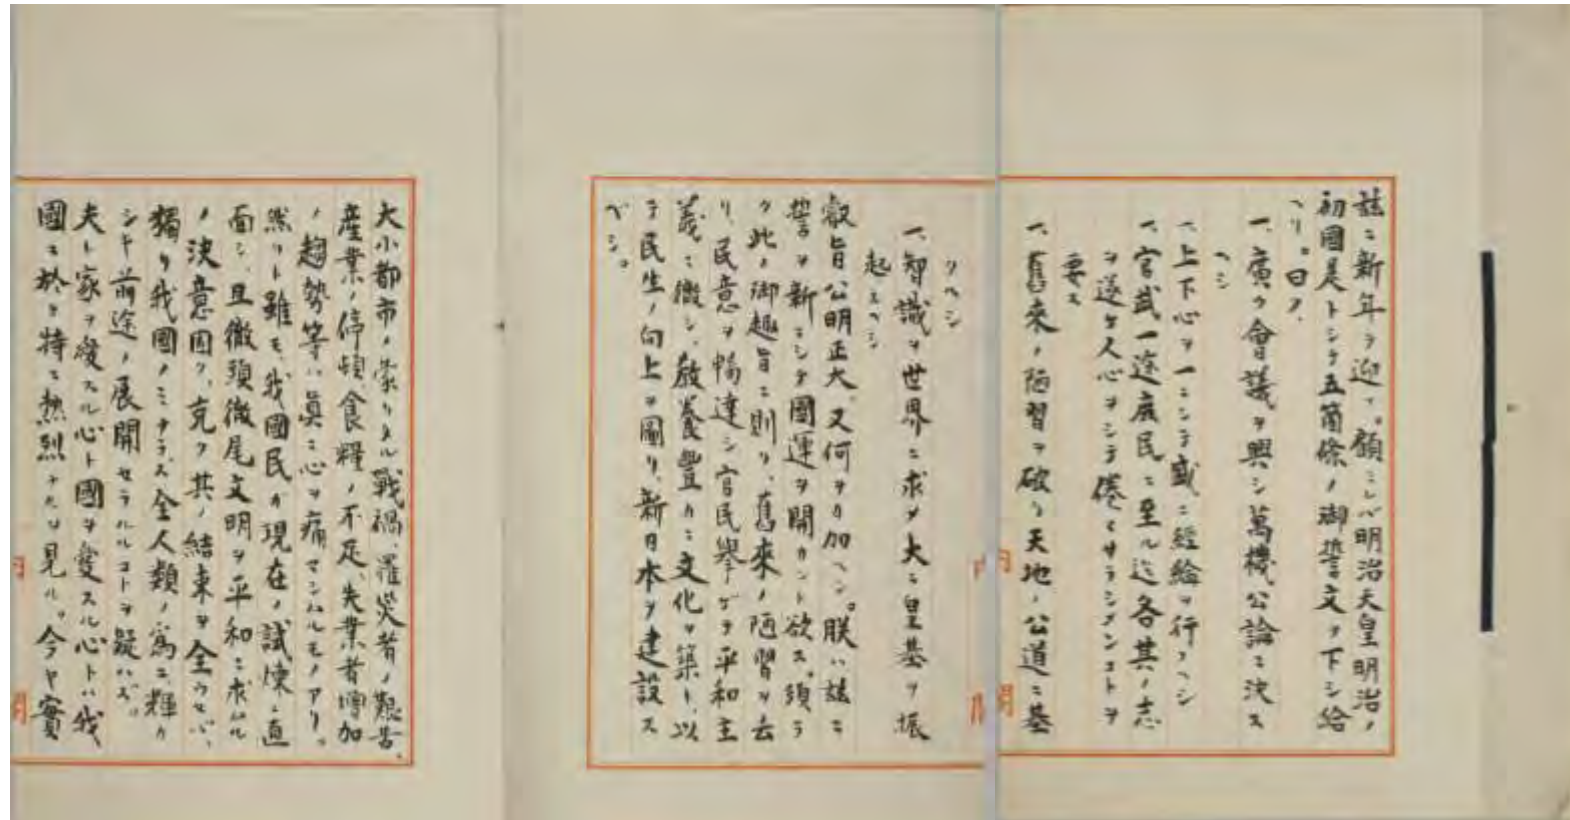 茲ニ新年ヲ迎フ。顧ミレバ明治天皇明治ノ
初國是トシテ五箇條ノ御誓文ヲ下シ給
ヘリ。曰ク、
一、廣ク會議ヲ興シ萬機公論ニ決ス
ヘシ
一、上下心ヲ一ニシテ盛ニ經綸ヲ行フヘシ
一、官武一途庶民ニ至ル迄各其ノ志
ヲ遂ケ人心ヲシテ倦マサラシメンコトヲ
要ス
一、舊來ノ陋習ヲ破リ天地ノ公道ニ基
クヘシ
一、智識ヲ世界ニ求メ大ニ皇基ヲ振
起スヘシ
叡旨公明正大、又何ヲカ加ヘン。朕ハ茲ニ
誓ヲ新ニシテ國運ヲ開カント欲ス。須ラ
ク此ノ御趣旨ニ則リ、舊來ノ陋習ヲ去
リ、民意ヲ暢達シ、官民擧ゲテ平和主
義ニ徹シ、敎養豐カニ文化ヲ築キ、以
テ民生ノ向上ヲ圖リ、新日本ヲ建設ス
ベシ。
大小都市ノ蒙リタル戰禍、罹災者ノ艱苦、
産業ノ停頓、食糧ノ不足、失業者增加
ノ趨勢等ハ眞ニ心ヲ痛マシムルモノアリ。
然リト雖モ、我國民ガ現在ノ試煉ニ直
面シ、且徹頭徹尾文明ヲ平和ニ求ムル
ノ決意固ク、克ク其ノ結束ヲ全ウセバ、
獨リ我國ノミナラズ全人類ノ爲ニ、輝カ
シキ前途ノ展開セラルルコトヲ疑ハズ。
夫レ家ヲ愛スル心ト國ヲ愛スル心トハ我
國ニ於テ特ニ熱烈ナルヲ見ル。今ヤ實